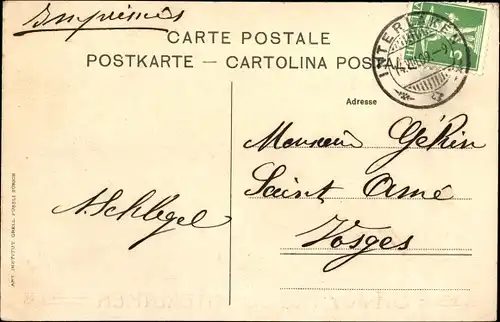 Imprimés
CARTE POSTALE
POSTKARTE — CARTOLINA POSTALE
INTERLAKEN
5
Adresse
Monsieur Gékin
Saint Amé
Vosges
A. Schlegel
ART. INSTITUT ORELL FÜSSLI ZÜRICH